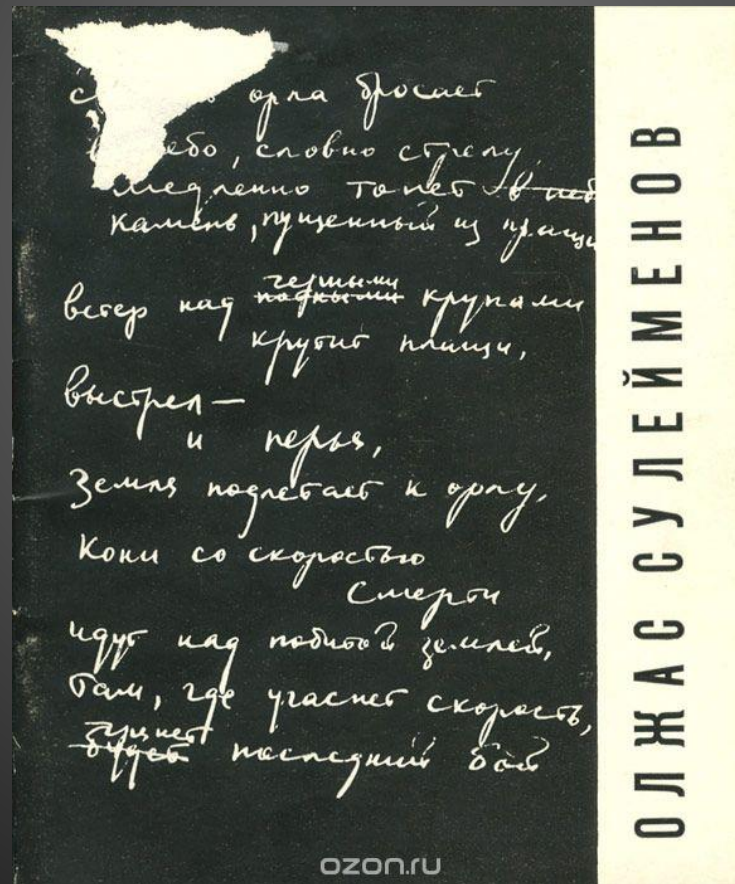 орла бросает
ебо, словно стрелу,
медленно тонет в неб
камень, пущенный из пращи
черными
ветер над крупами
крутит плащи,
выстрел —
и перья,
Земля подлетает к орлу,
Кони со скоростью
смерти
идут над побитой землей,
Там, где угаснет скорость,
грянет
будет последний бой
ОЛЖАС СУЛЕЙМЕНОВ
ozon.ru